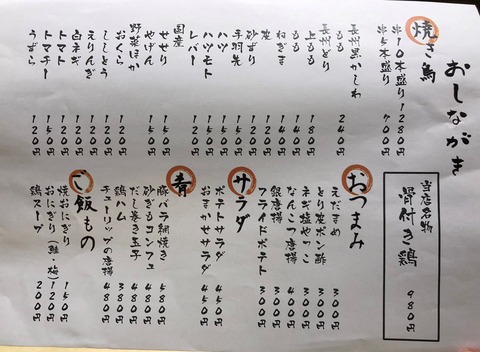 おしながき
焼き鳥
串10本盛り 1280円
串5本盛り 700円
長州黒かしわ
もも 240円
長州どり
上もも 180円
もも 140円
ねぎま 140円
皮 120円
砂ずり 120円
手羽先
ハツ
ハツモト
レバー 120円
国産
せせり 150円
やげん 150円
野菜ほか
おくら 120円
ししとう 120円
えりんぎ 120円
白ネギ 120円
トマト 120円
トマチー
うずら 120円
当店名物
骨付き鶏 980円
おつまみ
えだまめ 300円
とり皮ポン酢 300円
ネギ塩やっこ 300円
なんこつ唐揚
銀唐揚 300円
フライドポテト 300円
サラダ
ポテトサラダ 450円
おまかせサラダ 450円
肴
豚バラ網焼き 580円
砂ぎもコンフェ 480円
だし巻き玉子
鶏ハム
チューリップの唐揚 480円
ご飯もの
焼おにぎり 150円
おにぎり(鮭・梅) 120円
鶏スープ 200円